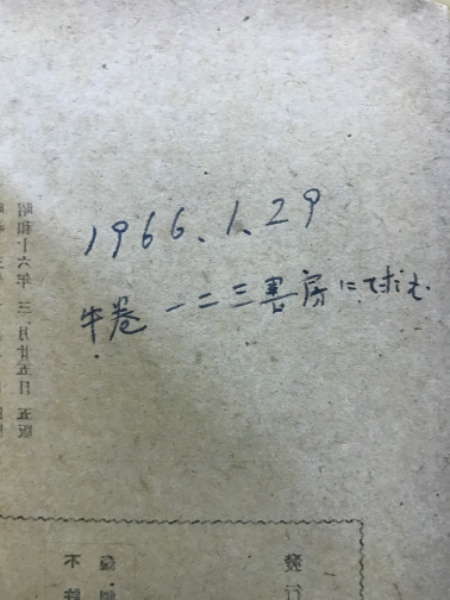 1966.1.29
牛巻 一二三書房にて求む.
昭和十六年 三月廿五日 五版
發行
不許